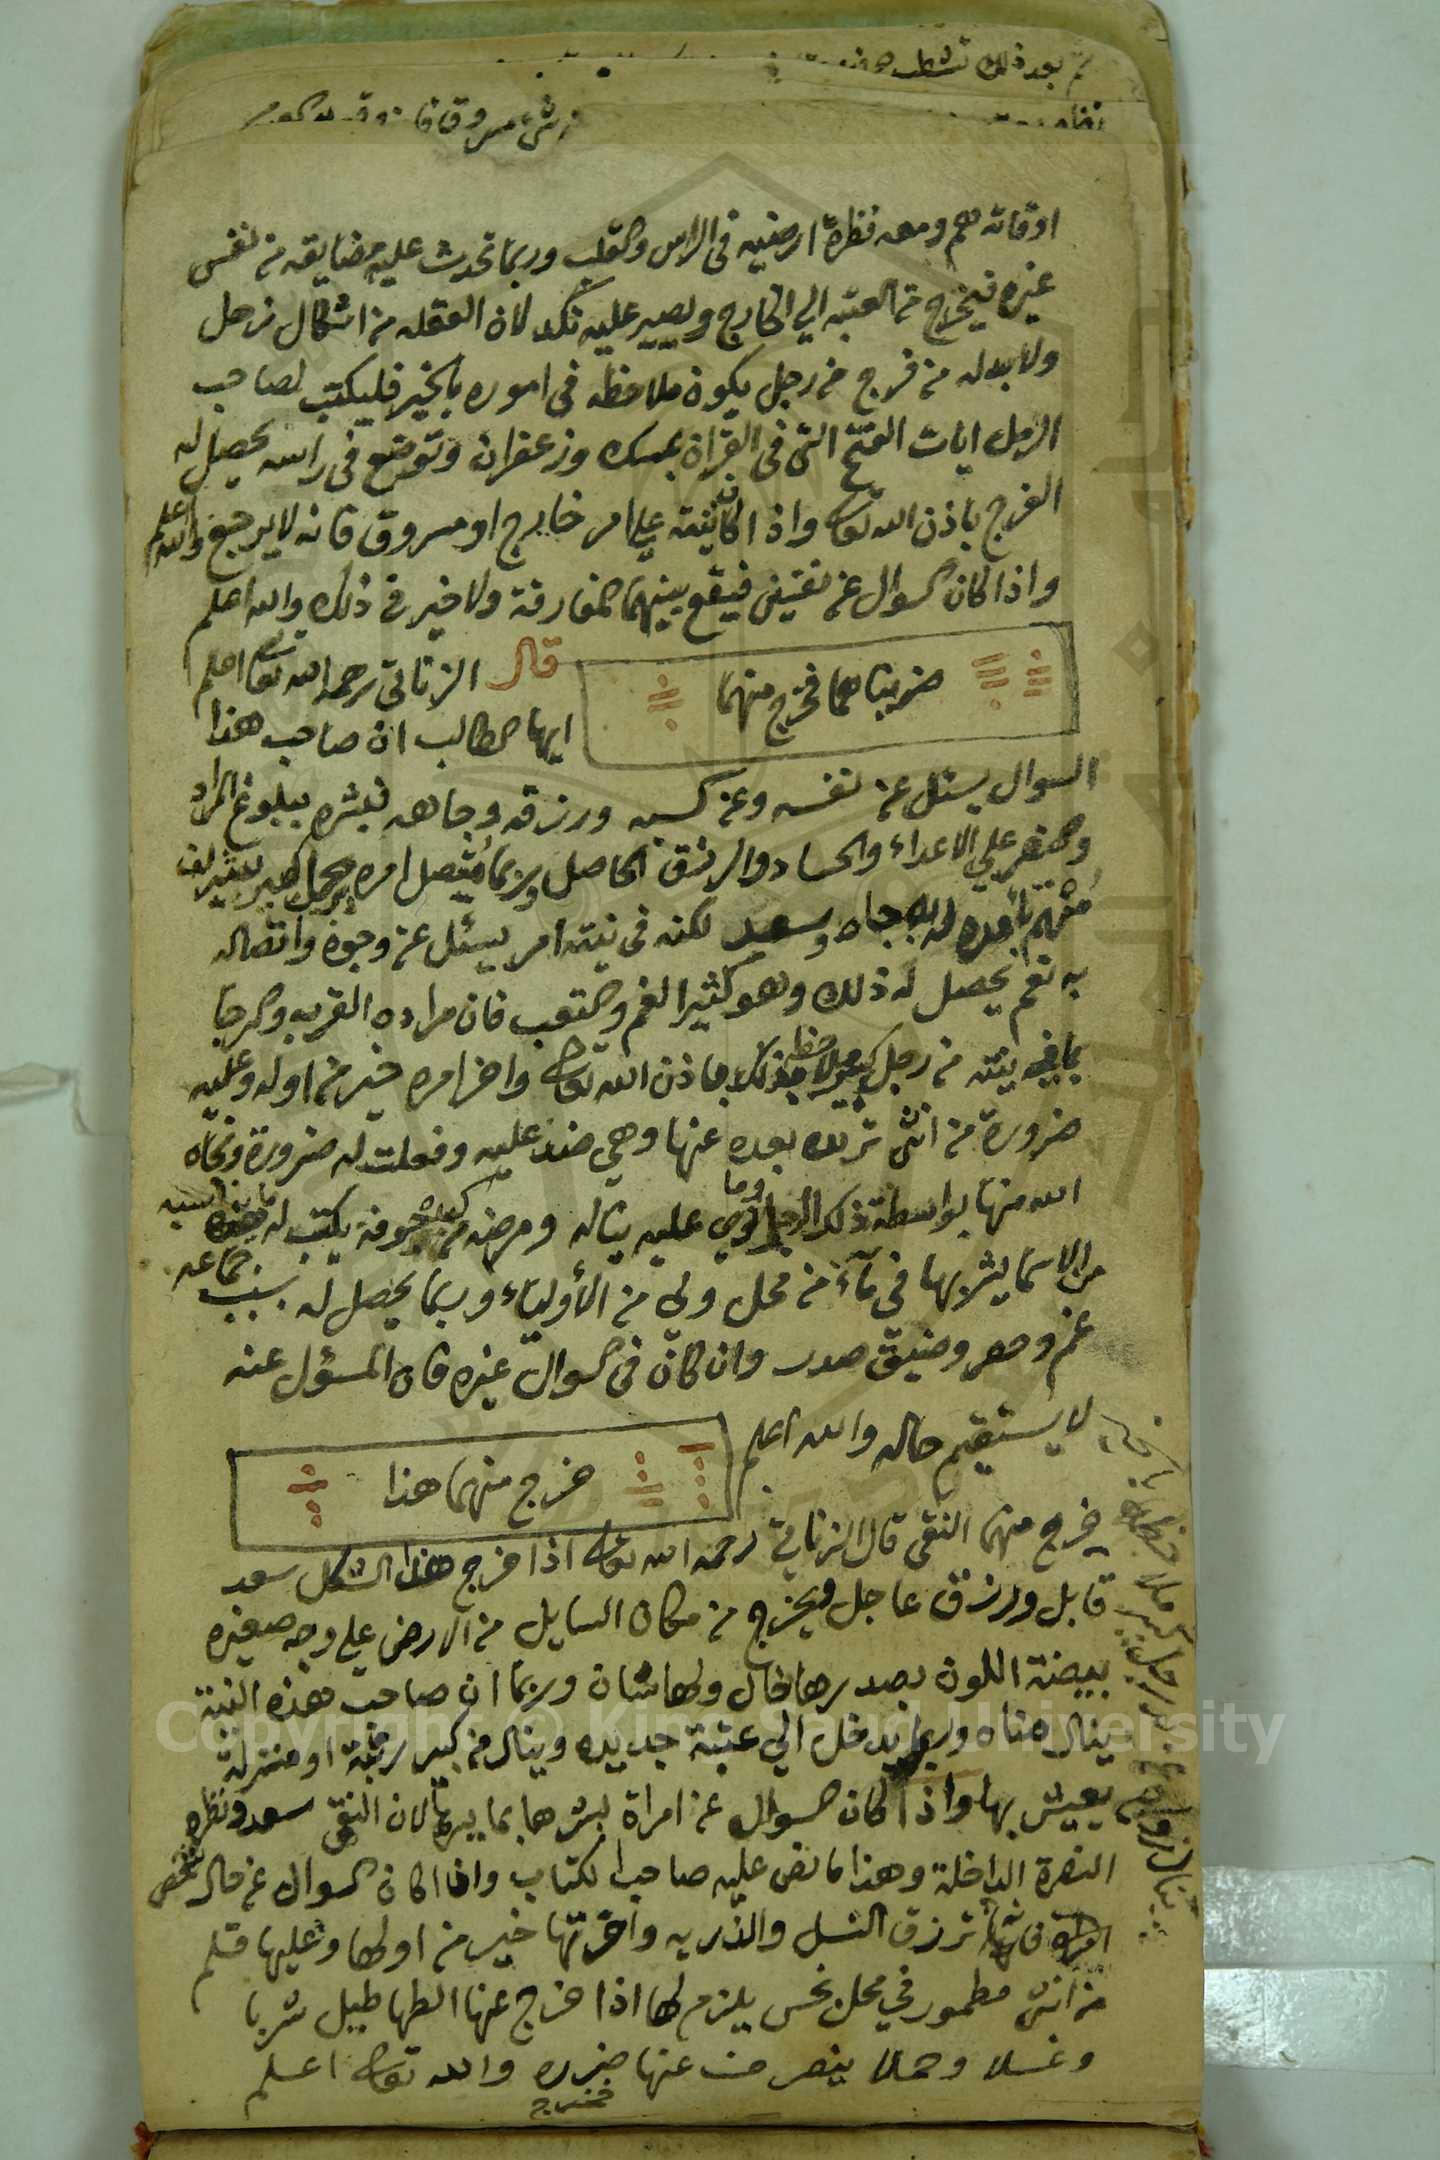 ثم بعد ذلك
اوقاته هم ومعه نظرة ارضيه في الراس والقلب وربما تحدث عليه مضايقه من نفس
غيره فيخرج من العتبه الي الخارج ويصير عليه نكد لان العقله من اشكال زحل
ولا بد له من فرج من رجل يكون ملاحظه في اموره بالخير فليكتب لصاحب
الرمل ايات الفتح التي في القران بمسك وزعفران وتوضع في راسه يحصل له
الفرج باذن الله تعالى واذا كانت نيته علي امر خارج او مسروق فانه لا يرجع والله اعلم
واذا كان السوال عن نفسين فيقع بينهما المفارقة ولا خير في ذلك والله اعلم
ضربناهما فخرج منهما
قال الزناتي رحمه الله تعالى اعلم
ايها الطالب ان صاحب هذا
السوال يسئل عن نفسه وعن كسبه ورزقه وجاهه فبشره ببلوغ المراد
والنصر علي الاعداء والحساد والرزق الحاصل وربما يتصل امره
جاه وسعيد لكنه في نيته امر يسئل عن وجوه واتصاله
به نعم يحصل له ذلك وهو كثير الغم والتعب فان مراده القرب والرجا
بما في نيته من رجل كبير باذن الله تعالى واخر امره خير من اوله وعليه
ضرورة من انثى تريد بعده عنها وهي ضد عليه وفعلت له ضرورة ونجاه
الله منها بواسطة ذلك الرجل عليه يناله ومرضه من كبده يكتب له ما يناسبه
من الاسما يشربها في مآء من محل ولي من الأولياء وربما يحصل له بسبب جماعه
غم وهم وضيق صدر وان كان في السوال غيره فان المسؤل عنه
لا يستقيم حاله والله اعلم
خرج منهما هذا
خرج منهما النقي قال الزناتي رحمه الله تعالى اذا خرج هذا الشكل سعد
قابل ورزق عاجل ويخرج من مكان السايل من الارض علي وجه صغيره
بيضة اللون بصدرها خال ولها شان وربما ان صاحب هذه النية
ينال مناه وربما يدخل الي عتبة جديده وينال من كبير رتبة او منزلة
يعيش بها واذا كان السوال عن امراة بشرها بما يسرها لان النقي سعد ونظره
النصرة الداخلة وهذا ما نص عليه صاحب الكتاب واذا كان السوال عن حال شخص
امراة فانها ترزق النسل والذريه واخرتها خير من اولها وعليها قلم
من انثى مطمور في محل نحس يلزم لها اذا خرج عنها الطهاطيل شربا
وغسلا وحملا ينصرف عنها ضرره والله تعالى اعلم
فخرج
Copyright © King Saud University